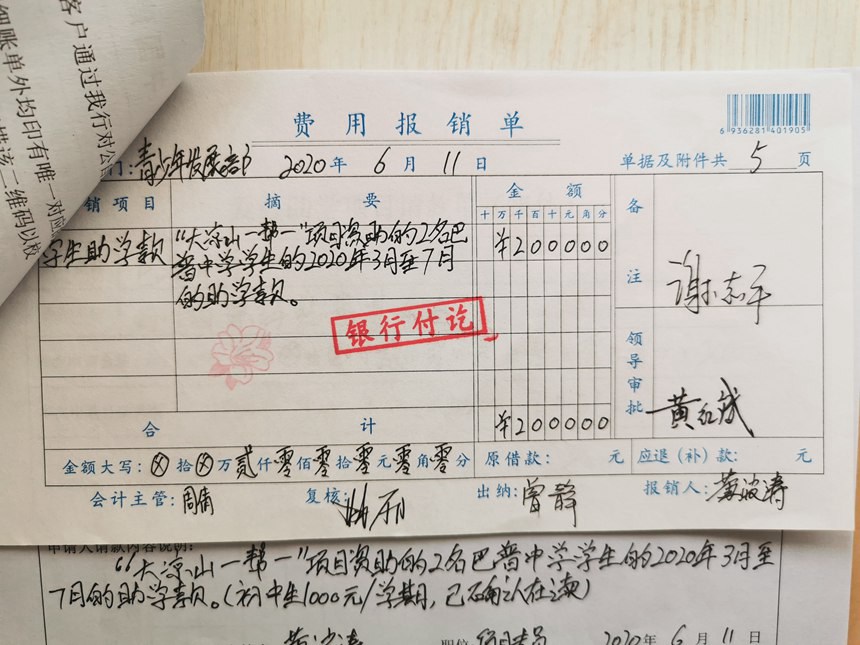 客户通过我行对公
细账单外均印有唯一对应
二维码以校
费用报销单
6 936281 401905
门：青少年发展部 2020年 6月 11日 单据及附件共 5 页
销项目 摘要 金额 备注 谢志平
十万千百十元角分
学生助学款 “大凉山一帮一”项目资助的2名巴 ¥200000
普中学学生的2020年3月至7月
的助学款。
银行付讫
领导审批
合计 ¥200000
金额大写：⊗拾⊗万贰仟零佰零拾零元零角零分 原借款： 元 应退（补）款： 元
会计主管：周倩 复核： 出纳：曾静 报销人：
申请人请款内容说明：
“大凉山一帮一”项目资助的2名巴普中学学生的2020年3月至
7月的助学款。（初中生1000元/学期，已确认在读）
职位 项目专员 2020年 6月 11日